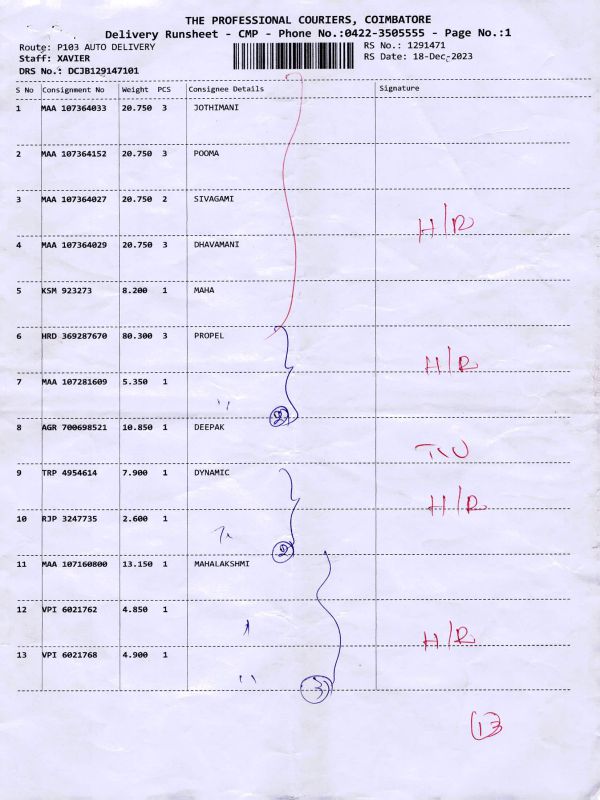 THE PROFESSIONAL COURIERS, COIMBATORE
Delivery Runsheet - CMP - Phone No.:0422-3505555 - Page No.:1
Route: P103 AUTO DELIVERY RS No.: 1291471
Staff: XAVIER RS Date: 18-Dec-2023
DRS No.: DCJB129147101
S No Consignment No Weight PCS Consignee Details Signature
1 MAA 107364033 20.750 3 JOTHIMANI
2 MAA 107364152 20.750 3 POOMA
3 MAA 107364027 20.750 2 SIVAGAMI
H/R
4 MAA 107364029 20.750 3 DHAVAMANI
5 KSM 923273 8.200 1 MAHA
6 HRD 369287670 80.300 3 PROPEL
H/R
7 MAA 107281609 5.350 1
"
2
8 AGR 700698521 10.850 1 DEEPAK
9 TRP 4954614 7.900 1 DYNAMIC
H/R
10 RJP 3247735 2.600 1
2
11 MAA 107160800 13.150 1 MAHALAKSHMI
12 VPI 6021762 4.850 1
H/R
13 VPI 6021768 4.900 1
"
3
13